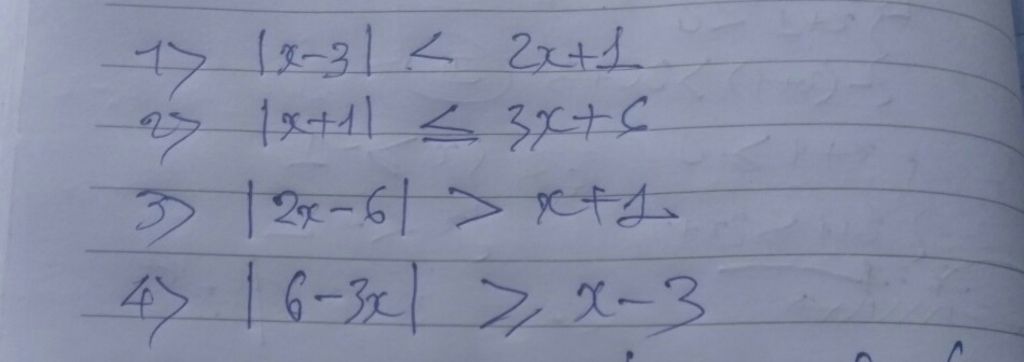 1> |x-3| < 2x+1
2> |x+1| ≤ 3x+6
3> |2x-6| > x+1
4> |6-3x| ≥ x-3